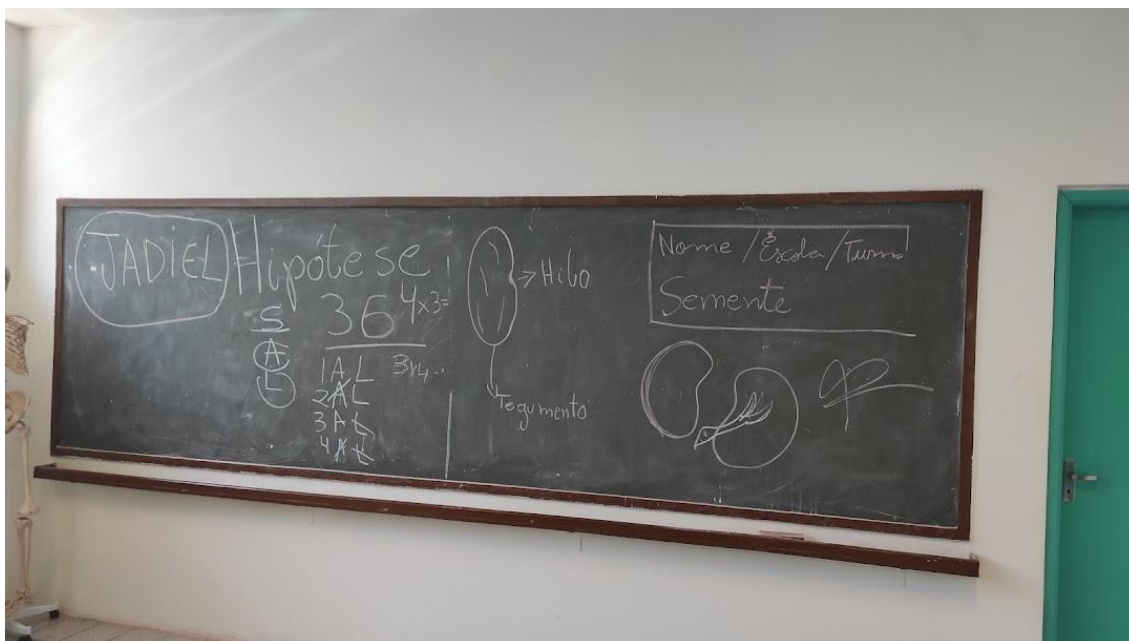 JADIEL
Hipótese
S
A
L
36
4x3=
1 A L
3x4
2 A L
3 A L
4 A L
→ Hilo
Tegumento
Nome / Escola / Turma
Semente